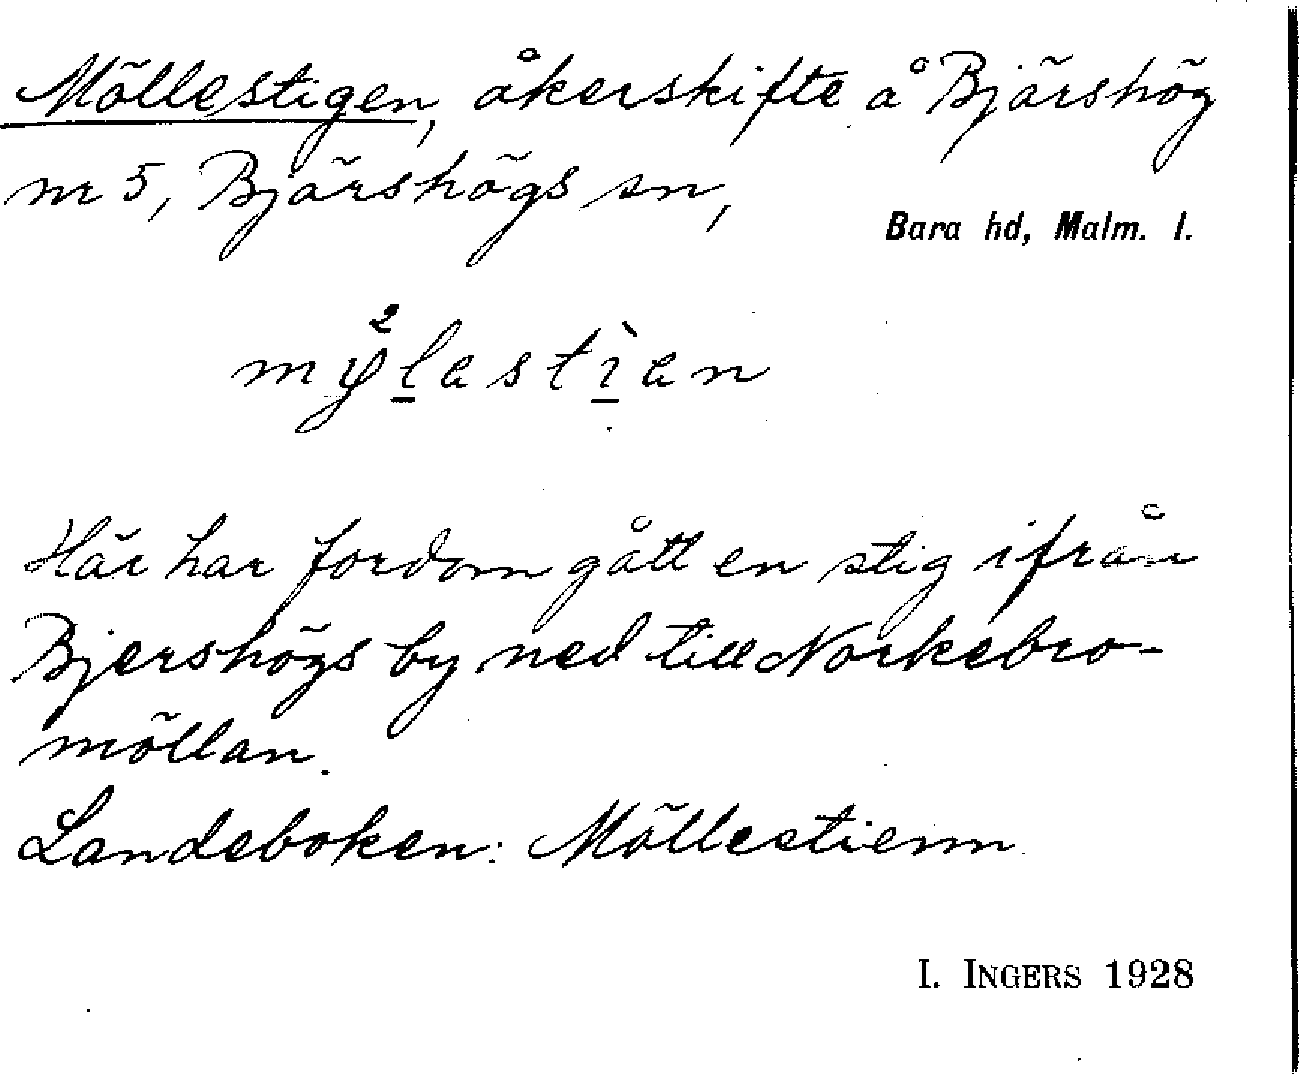 Möllestigen, åkerskifte å Bjärshög
nr 5, Bjärshögs sn,
Bara hd, Malm. l.
Här har fordom gått en stig ifrån
Bjershögs by ned till Norkebro-
möllan.
Landeboken: Möllestienn
I. INGERS 1928